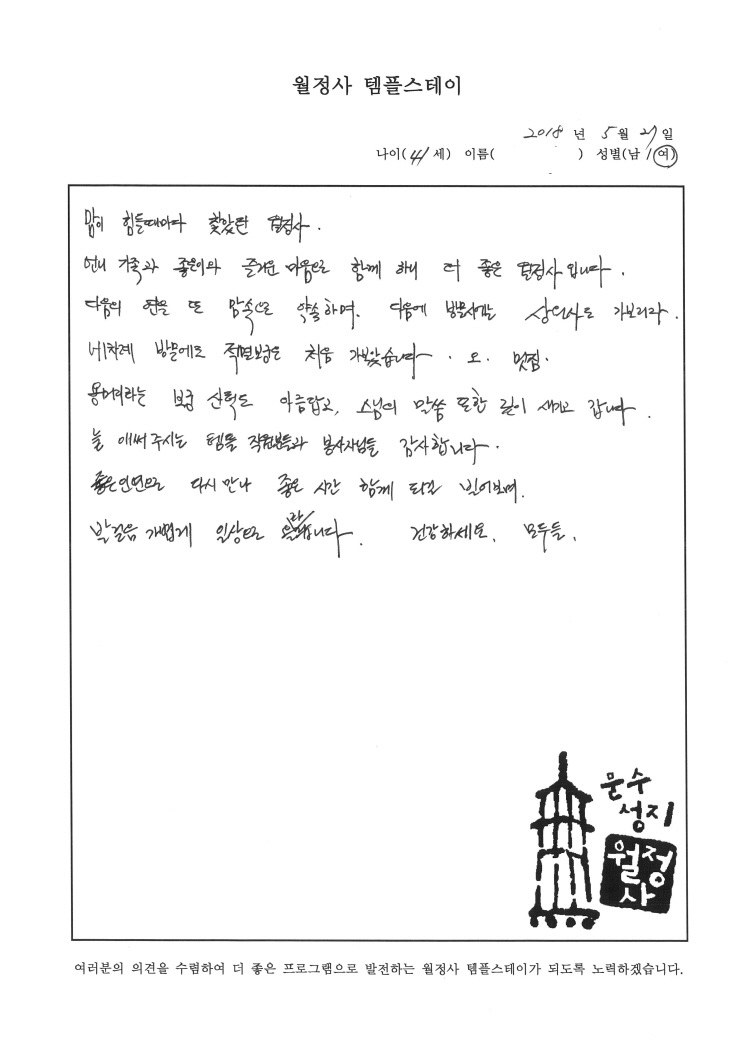 월정사 템플스테이
2018 년 5 월 27 일
나이( 41 세) 이름( ) 성별(남 / 여)
맘이 힘들때마다 찾았던 월정사.
언니 가족과 좋은이와 즐거운 마음으로 함께 하니 더 좋은 월정사입니다.
다음의 연을 또 맘속으로 약속하며. 다음에 방문시에는 상원사도 가보리라.
네차례 방문에도 적멸보궁은 처음 가보았습니다. 오. 멋짐.
용머리라는 보궁 산턱도 아름답고, 스님의 말씀 또한 깊이 새기고 갑니다.
늘 애써주시는 템플 직원분들과 봉사자님들 감사합니다.
좋은인연으로 다시 만나 좋은 시간 함께 되길 빌어보며.
발걸음 가볍게 일상으로 니다. 건강하세요. 모두들.
문수
성지
월정
사
여러분의 의견을 수렴하여 더 좋은 프로그램으로 발전하는 월정사 템플스테이가 되도록 노력하겠습니다.